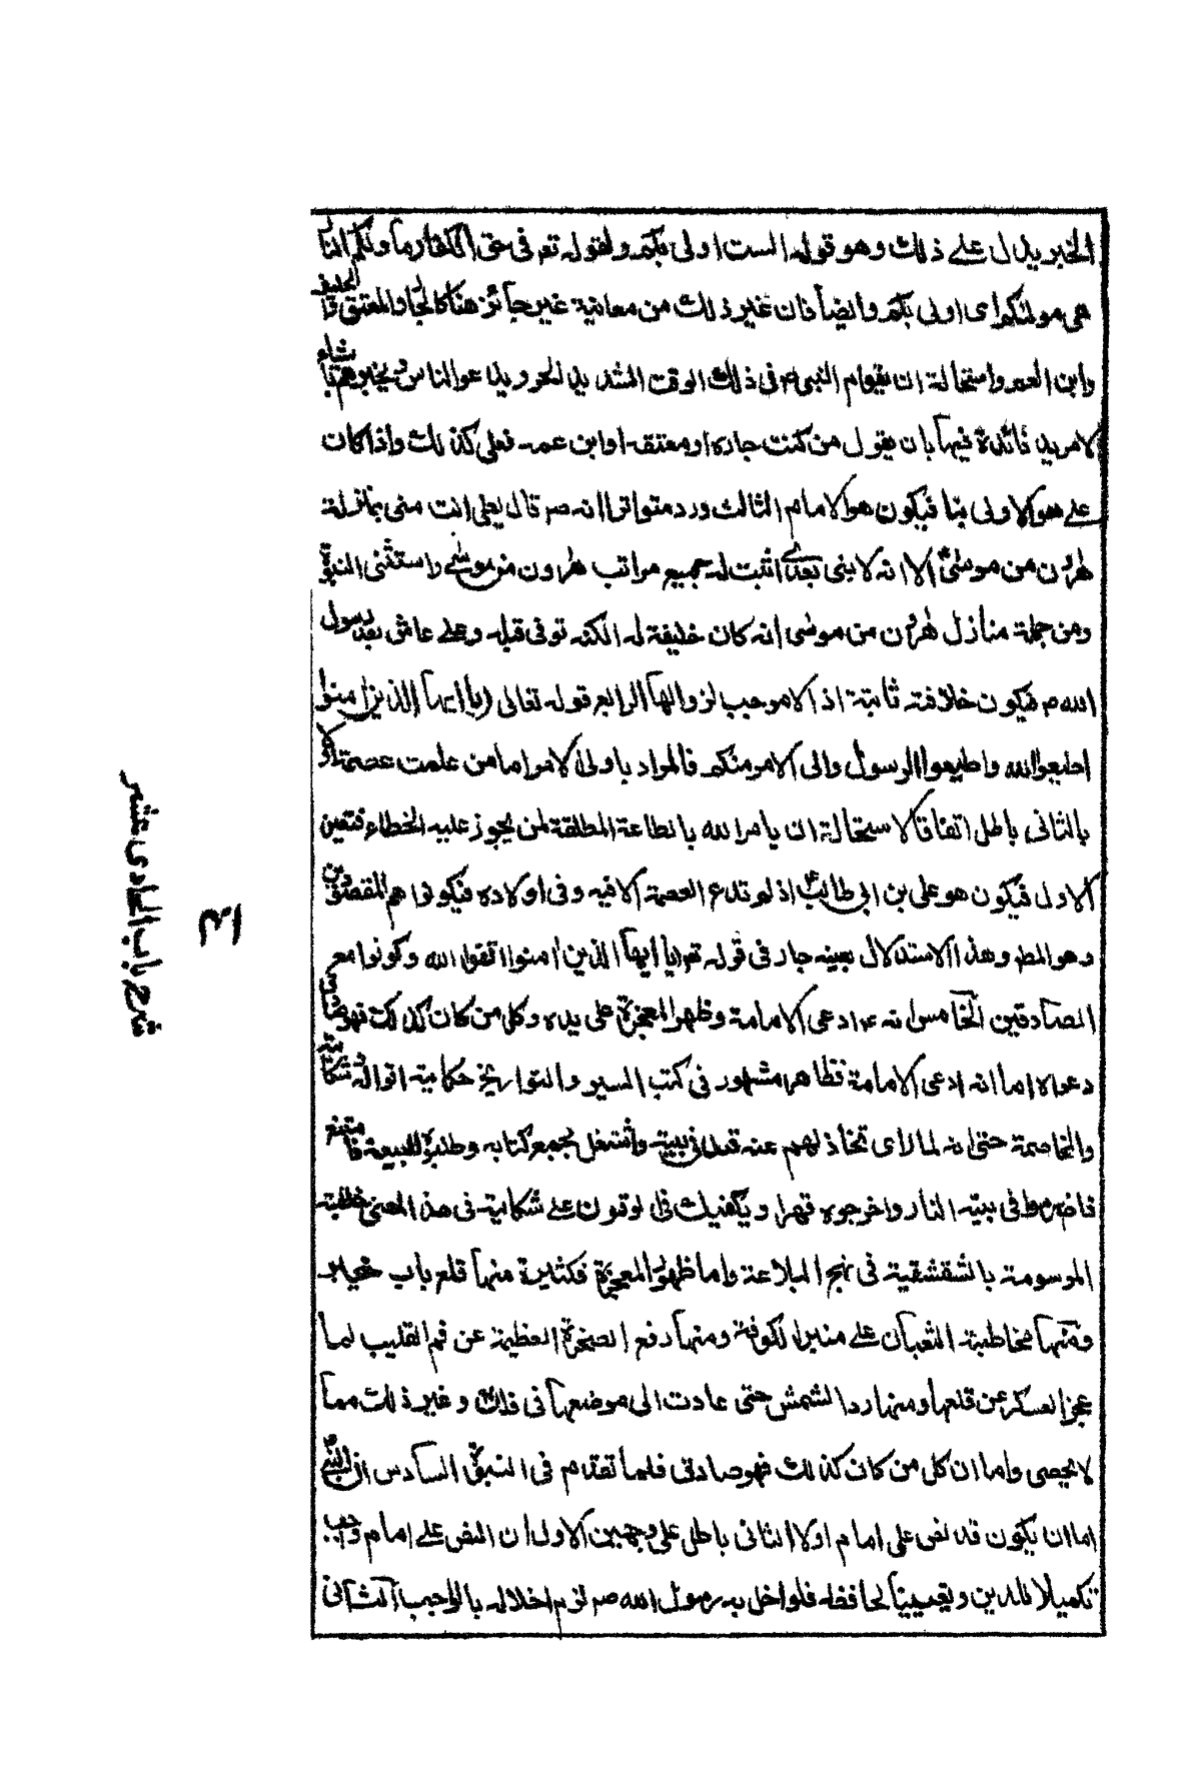 الخبر يدل على ذلك وهو قوله الست اولى بكم ولقوله تع فى حق الكفار ماولكم النار
هى مولىكم اى اولى بكم وايضا فان غير ذلك من معانية غير جائز هنا كالجار والمعتق والحليف
وابن العم واستحالة ان يقوم النبى م فى ذلك الوقت الشديد الحر ويدعو الناس ويخبرهم باشياء
لا مزيد فائدة فيها بان يقول من كنت جاره او معتقه او ابن عمه فعلى كذلك واذا كان
على هو الاولى بنا فيكون هو الامام الثالث ورد متواترا انه ص قال لعلى انت منى بمنزلة
هرون من موسى الا انه لا نبى بعدى اثبت له جميع مراتب هارون من موسى واستثنى النبوة
ومن جملة منازل هرون من موسى انه كان خليفة له لكنه توفى قبله وعلى عاش بعد رسول
الله م فيكون خلافته ثابتة اذ لا موجب لزوالها الرابع قوله تعالى (يا ايها الذين امنوا
اطيعوا الله واطيعوا الرسول والى الامر منكم فالمراد باولى الامر اما من علمت عصمته او لا
بالثانى باطل اتفاقا لاستحالة ان يامر الله بالطاعة المطلقة لمن يجوز عليه الخطاء فتعين
الاول فيكون هو على بن ابى طالب اذ لم تدع العصمة الا فيه وفى اولاده فيكونوا هم المقصودين
وهو المط وهذا الاستدلال بعينه جار فى قوله تع (يا ايها الذين امنوا اتقوا الله وكونوا مع
الصادقين الخامس انه ع ادعى الامامة وظهر المعجزة على يده وكل من كان كذلك فهو صادق فى
دعواه اما انه ادعى الامامة فظاهر مشهور فى كتب السير والتواريخ حكاية اقواله وشكايته
والمخاصمة حتى انه لما راى تخاذلهم عنه قعد فى بيته واشتغل بجمع كتابه وطلبوه للبيعة فامتنع
فاضرموا فى بيته النار واخرجوه قهرا ويكفيك فى لوقوف على شكايته فى هذا المعنى خطبته
الموسومة بالشقشقية فى نهج البلاغة واما ظهور المعجزة فكثيرة منها قلع باب خيبر
ومنها مخاطبة الثعبان على منبر الكوفة ومنها رفع الصخرة العظيمة عن فم القليب لما
عجز العسكر عن قلعها ومنها رد الشمش حتى عادت الى موضعها فى فلك وغير ذلك مما
لا يحصى واما ان كل من كان كذلك فهو صادق فلما تقدم فى النبوة السادس ان النبى
اما ان يكون قد نص على امام اولا الثانى باطل على وجهين الاول ان النص على امام واجب
تكميلا للدين وتعيينا لحافظه فلو اخل به رسول الله ص لزم اخلاله بالواجب الثانى
٤
شرح باب الحادى عشر